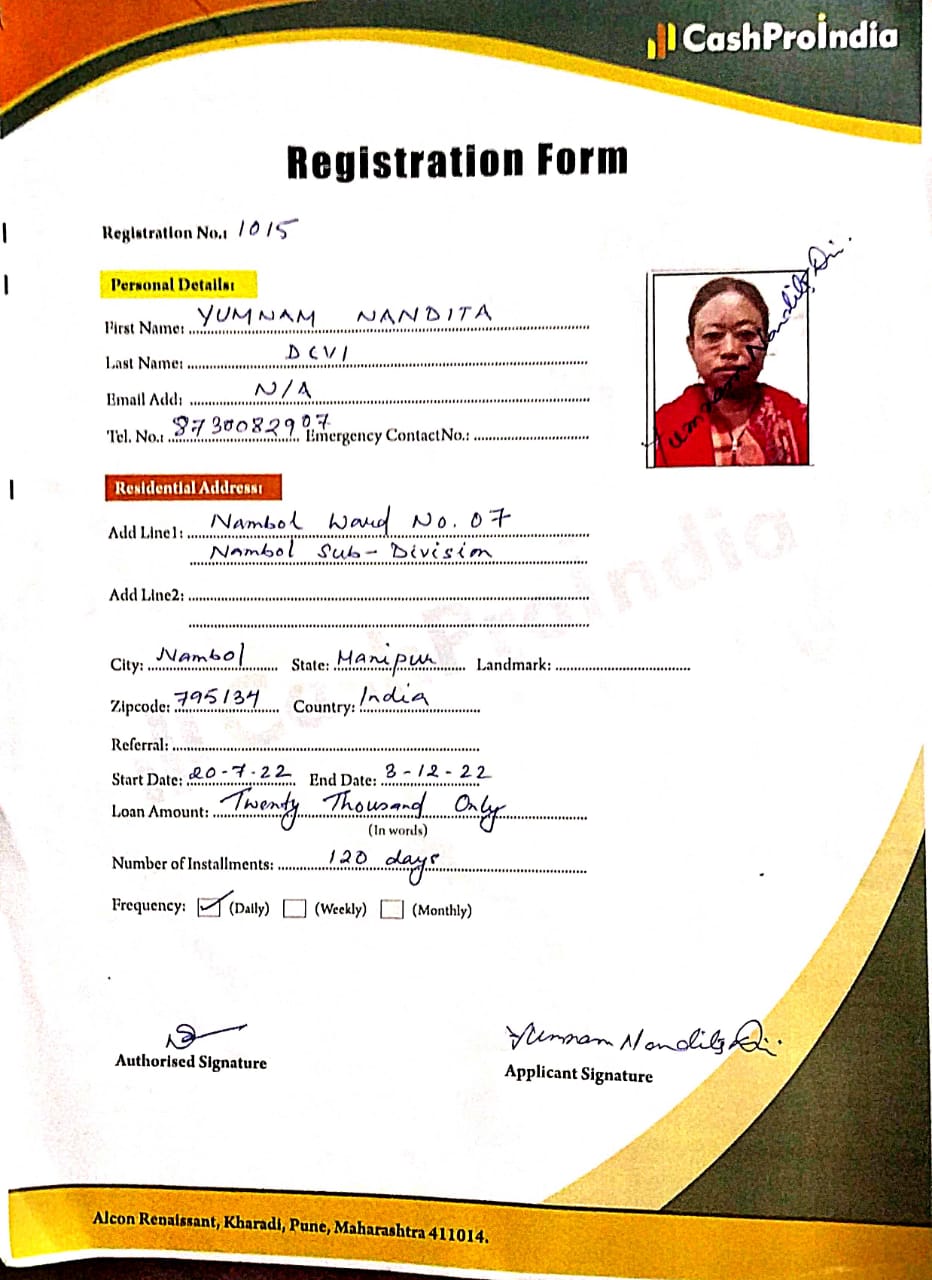 CashProIndia
Registration Form
Registration No.: 1015
Personal Details:
First Name: YUMNAM NANDITA
Last Name: DEVI
Email Add: N/A
Tel. No.: 8730082907 Emergency Contact No.:
Residential Address:
Add Line1: Nambol Ward No. 07
Nambol Sub-Division
Add Line2:
City: Nambol State: Manipur Landmark:
Zipcode: 795134 Country: India
Referral:
Start Date: 20-7-22 End Date: 3-12-22
Loan Amount: Twenty Thousand Only
(In words)
Number of Installments: 120 days
Frequency: (Daily) (Weekly) (Monthly)
Yumnam Nandita Devi.
Authorised Signature
Yumnam Nandita Devi.
Applicant Signature
Alcon Renaissant, Kharadi, Pune, Maharashtra 411014.
CashProIndia